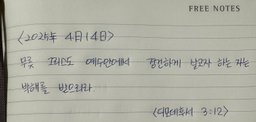 FREE NOTES
<2025年 4月14日>
무릇 그리스도 예수안에서 경건하게 살고자 하는 자는
박해를 받으리라
<디모데후서 3:12>